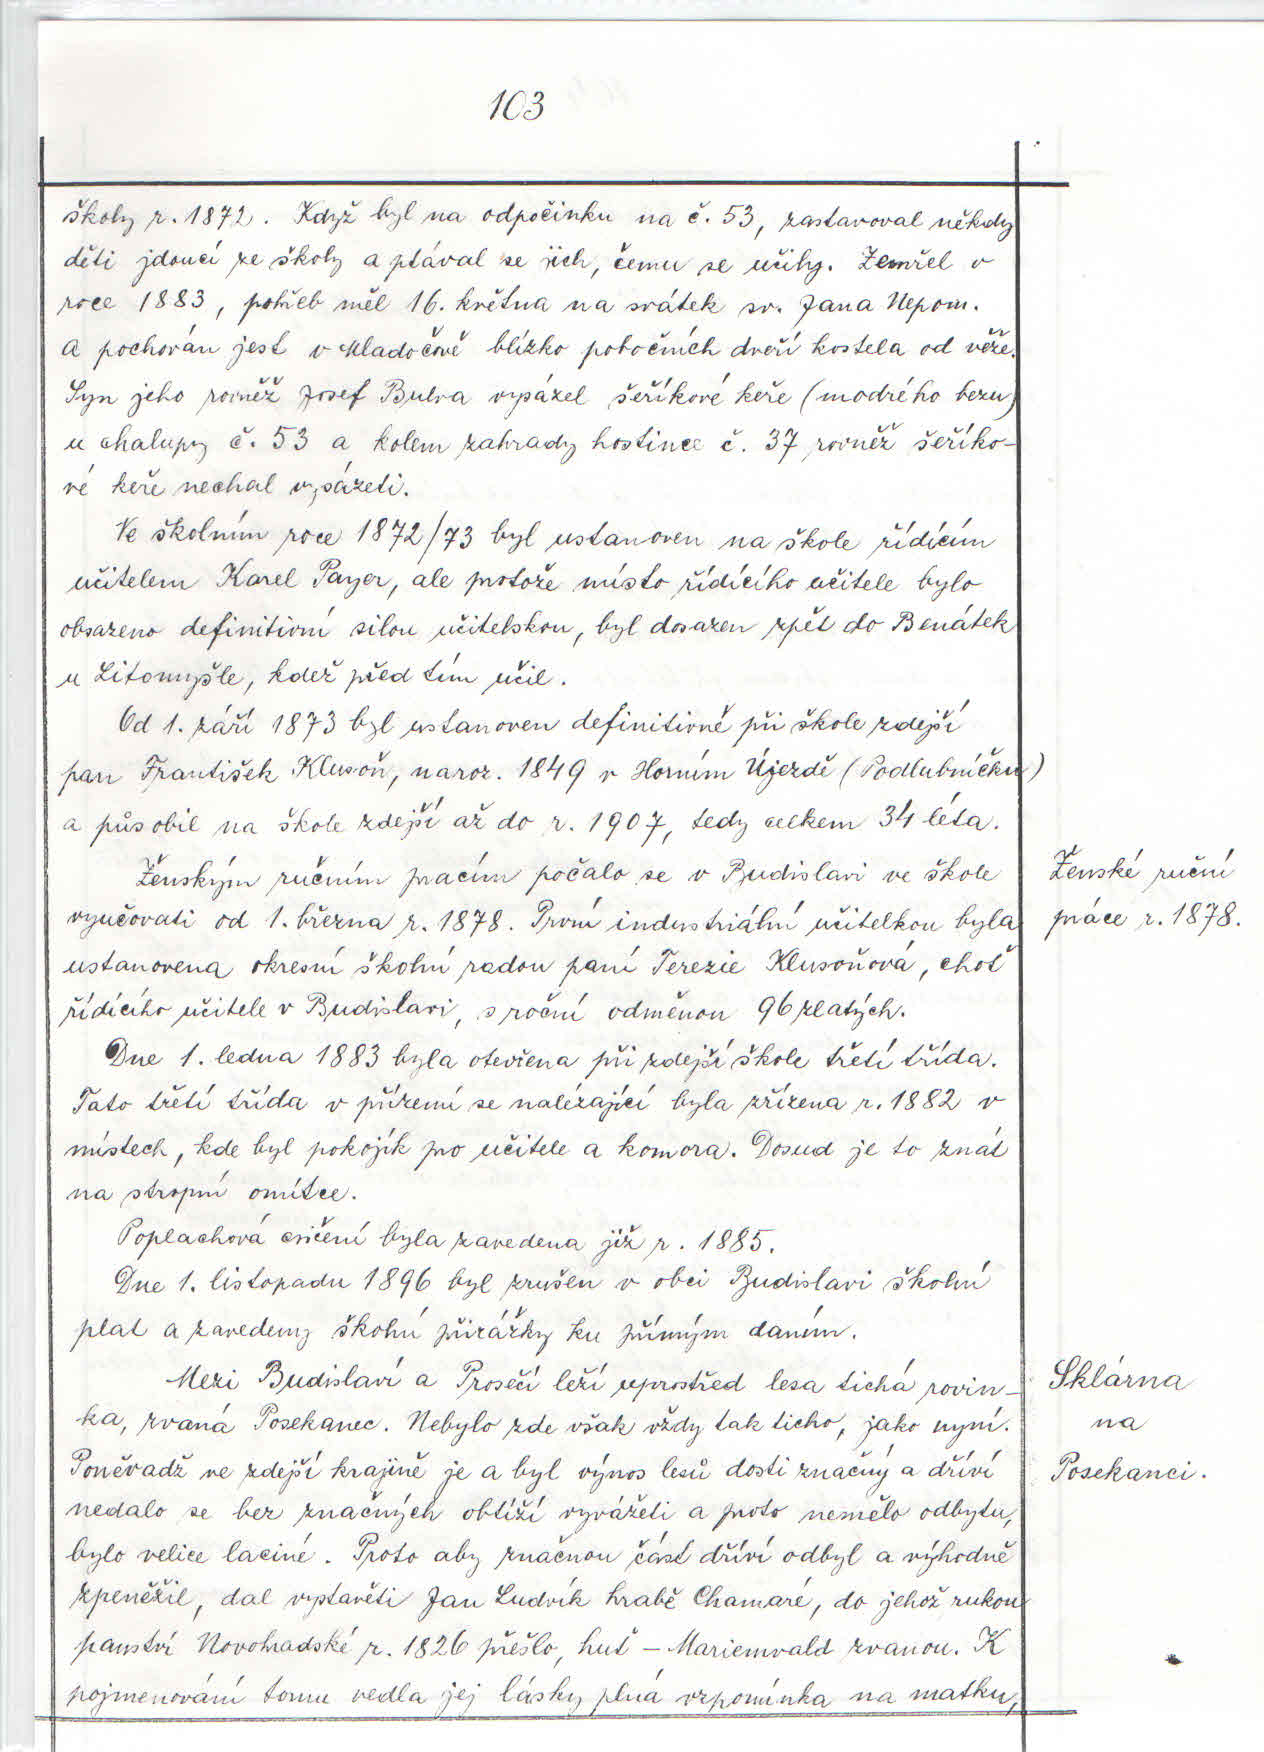 103
školy r. 1872. Když byl na odpočinku na č. 53, zastavoval někdy
děti jdoucí ze školy a ptával se jich, čemu se učily. Zemřel v
roce 1883, pohřeb měl 16. května na svátek sv. Jana Nepom.
a pochován jest v Mladočově blízko pobočních dveří kostela od věže.
Syn jeho rovněž Josef Bulva vysázel šeříkové keře (modrého bezu)
u chalupy č. 53 a kolem zahrady hostince č. 37 rovněž šeříko-
vé keře nechal vysázeti.
Ve školním roce 1872/73 byl ustanoven na škole řídícím
učitelem Karel Payer, ale protože místo řídícího učitele bylo
obsazeno definitivní silou učitelskou, byl dosazen zpět do Benátek
u Litomyšle, kdež před tím učil.
Od 1. září 1873 byl ustanoven definitivně při škole zdejší
pan František Klusoň, naroz. 1849 v Horním Újezdě (Podlubníčku)
a působil na škole zdejší až do r. 1907, tedy celkem 34 léta.
Ženským ručním pracím počalo se v Budislavi ve škole
Ženské ruční
vyučovati od 1. března r. 1878. První industriální učitelkou byla
práce r. 1878.
ustanovena okresní školní radou paní Terezie Klusoňová, choť
řídícího učitele v Budislavi, s roční odměnou 96 zlatých.
Dne 1. ledna 1883 byla otevřena při zdejší škole třetí třída.
Tato třetí třída v přízemí se nalézající byla zřízena r. 1882 v
místech, kde byl pokojík pro učitele a komora. Dosud je to znát
na stropní omítce.
Poplachová cvičení byla zavedena již r. 1885.
Dne 1. listopadu 1896 byl zrušen v obci Budislavi školní
plat a zavedeny školní přirážky ku přímým daním.
Mezi Budislaví a Prosečí leží uprostřed lesa tichá rovin-
Sklárna
ka, zvaná Posekanec. Nebylo zde však vždy tak ticho, jako nyní.
na
Poněvadž ve zdejší krajině je a byl výnos lesů dosti značný a dříví
Posekanci.
nedalo se bez značných obtíží vyvážeti a proto nemělo odbytu,
bylo velice laciné. Proto aby značnou část dříví odbyl a výhodně
zpeněžil, dal vystavěti Jan Ludvík hrabě Chamaré, do jehož rukou
panství Novohradské r. 1826 přešlo, huť – Marienwald zvanou. K
pojmenování tomu vedla jej lásky plná vzpomínka na matku,